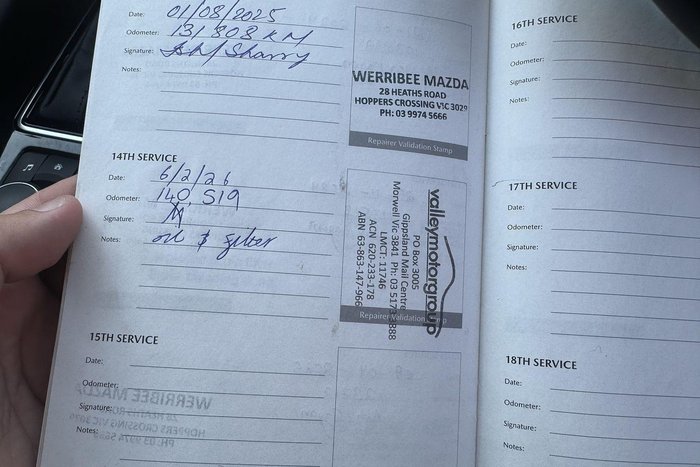 Date: 01/08/2025
Odometer: 131 808 KM
Signature:
Notes:
WERRIBEE MAZDA
28 HEATHS ROAD
HOPPERS CROSSING VIC 3029
PH: 03 9974 5666
Repairer Validation Stamp
14TH SERVICE
Date: 6/2/26
Odometer: 140, 519
Signature:
Notes: oil & filter
valleymotorgroup
PO Box 3005
Gippsland Mail Centre
Morwell Vic 3841 Ph: 03 517 888
LMCT: 11746
ACN 620-233-178
ABN 63-863-147-966
Repairer Validation Stamp
15TH SERVICE
Date:
Odometer:
Signature:
Notes:
WERRIBEE MAZDA
28 HEATHS ROAD
HOPPERS CROSSING VIC 3029
PH: 03 9974 5666
16TH SERVICE
Date:
Odometer:
Signature:
Notes:
17TH SERVICE
Date:
Odometer:
Signature:
Notes:
18TH SERVICE
Date:
Odometer:
Signature:
Notes: